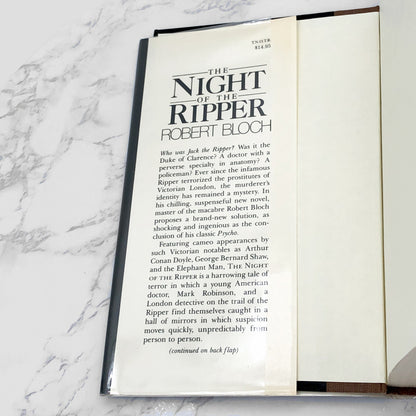 TNOTR
$14.95
THE
NIGHT
OF THE
RIPPER
ROBERT BLOCH
Who was Jack the Ripper? Was it the
Duke of Clarence? A doctor with a
perverse specialty in anatomy? A
policeman? Ever since the infamous
Ripper terrorized the prostitutes of
Victorian London, the murderer's
identity has remained a mystery. In
his chilling, suspenseful new novel,
master of the macabre Robert Bloch
proposes a brand-new solution, as
shocking and ingenious as the con-
clusion of his classic Psycho.
Featuring cameo appearances by
such Victorian notables as Arthur
Conan Doyle, George Bernard Shaw,
and the Elephant Man, THE NIGHT
OF THE RIPPER is a harrowing tale of
terror in which a young American
doctor, Mark Robinson, and a
London detective on the trail of the
Ripper find themselves caught in a
hall of mirrors in which suspicion
moves quickly, unpredictably from
person to person.
(continued on back flap)